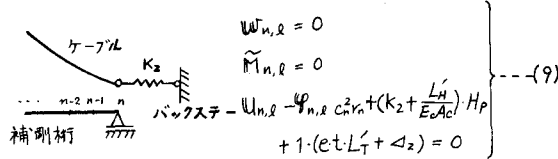 ケーブル
K₂
‥‥ n-2 n-1 n
補剛桁
バックステー
w_{n,l} = 0
M̃_{n,l} = 0
u_{n,l} - φ_{n,l} c_n² r_n + (K₂ + L'_H / E_c A_c)・H_p
+ 1・(e・t・L'_T + Δ₂) = 0
---(9)